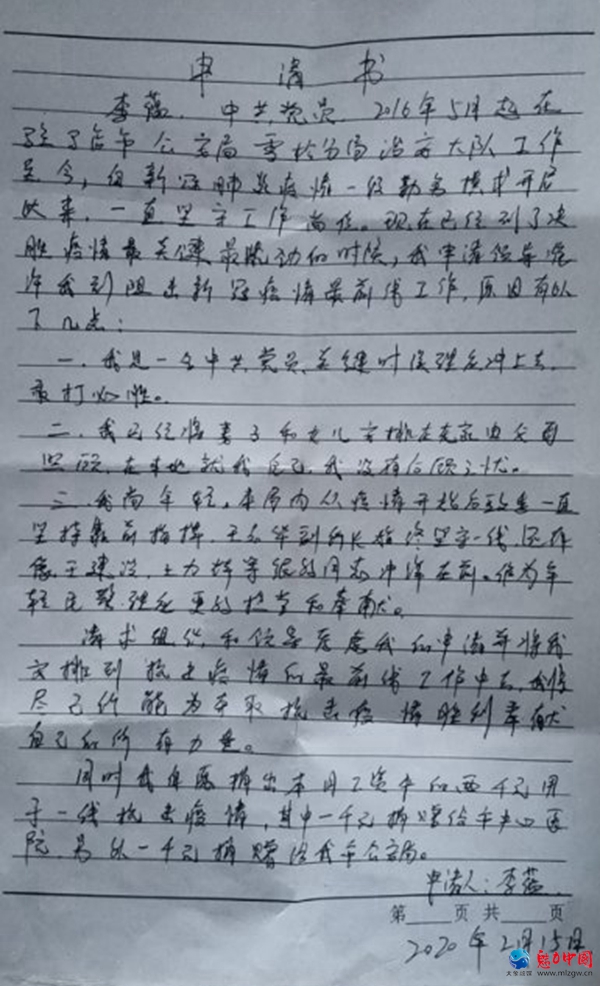 申请书
李蕴，中共党员，2016年5月起在
公安局雪松分局治安大队工作
至今，自新冠肺炎疫情一级勤务模式开启
以来，一直坚守工作岗位。现在已经到了决
胜疫情最关键最胶动的时候，我申请领导允
许我到阻击新冠疫情最前线工作，原因有以
下几点：
一、我是一名中共党员，关键时候理应冲上去，
敢打必胜。
二、我已经将妻子和女儿安排在老家由父母
照顾，在本地就我自己，我没有后顾之忧。
三、我尚年轻，本局内从疫情开始后一直
坚持靠前指挥，所长始终坚守一线，还有
像王建汶、等很多同志冲锋在前。作为年
轻民警，理应更多担当和奉献。
请求组织和领导考虑我的申请并将我
安排到抗击疫情的最前线工作中去，我将
尽己所能为夺取抗击疫情胜利奉献
自己的所有力量。
同时我自愿捐出本月工资中的两千元用
于一线抗击疫情，其中一千元捐赠给市中心医
院，另外一千元捐赠给我市公安局。
申请人：李蕴
第 页 共 页
2020年2月15日
大象融媒 魅力中国
www.mlzgw.cn